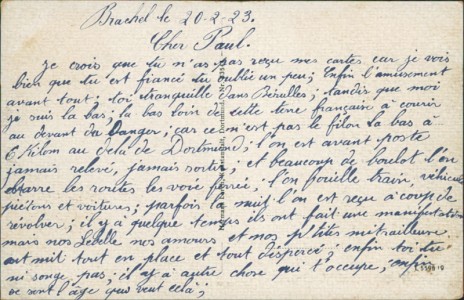 Brachel le 20-2-23.
Cher Paul.
Je crois que tu n'as pas reçu mes cartes car je vois
bien que tu est fiancé tu oublié un peu; Enfin l'amusement
avant tout; toi tranquille dans tandis que moi
je suis la bas; la bas loin de cette terre française à courir
au devant du Danger; car ce n'est pas le filon la bas à
6 Kilom au delà de Dortmund, l'on est avant poste
jamais relevé, jamais sortir, et beaucoup de boulot l'on
les routes les voie ferrée, l'on fouille train, véhicule
piétons et voitures; parfois la nuit l'on est reçu à coup de
révolver; il y a quelque temps ils ont fait une manifestation
mais nos Lebelle nos amours, et nos p'tites mitrailleuse
ont mit tout en place et tout dispercé; enfin toi tu
ni songe pas; il y a autre chose qui t'occupe, enfin
ce sont l'âge que veut celà;